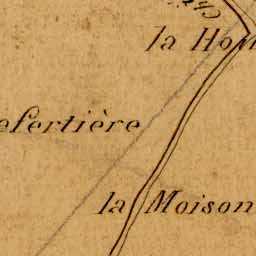 la Hou
efertière
la Moison